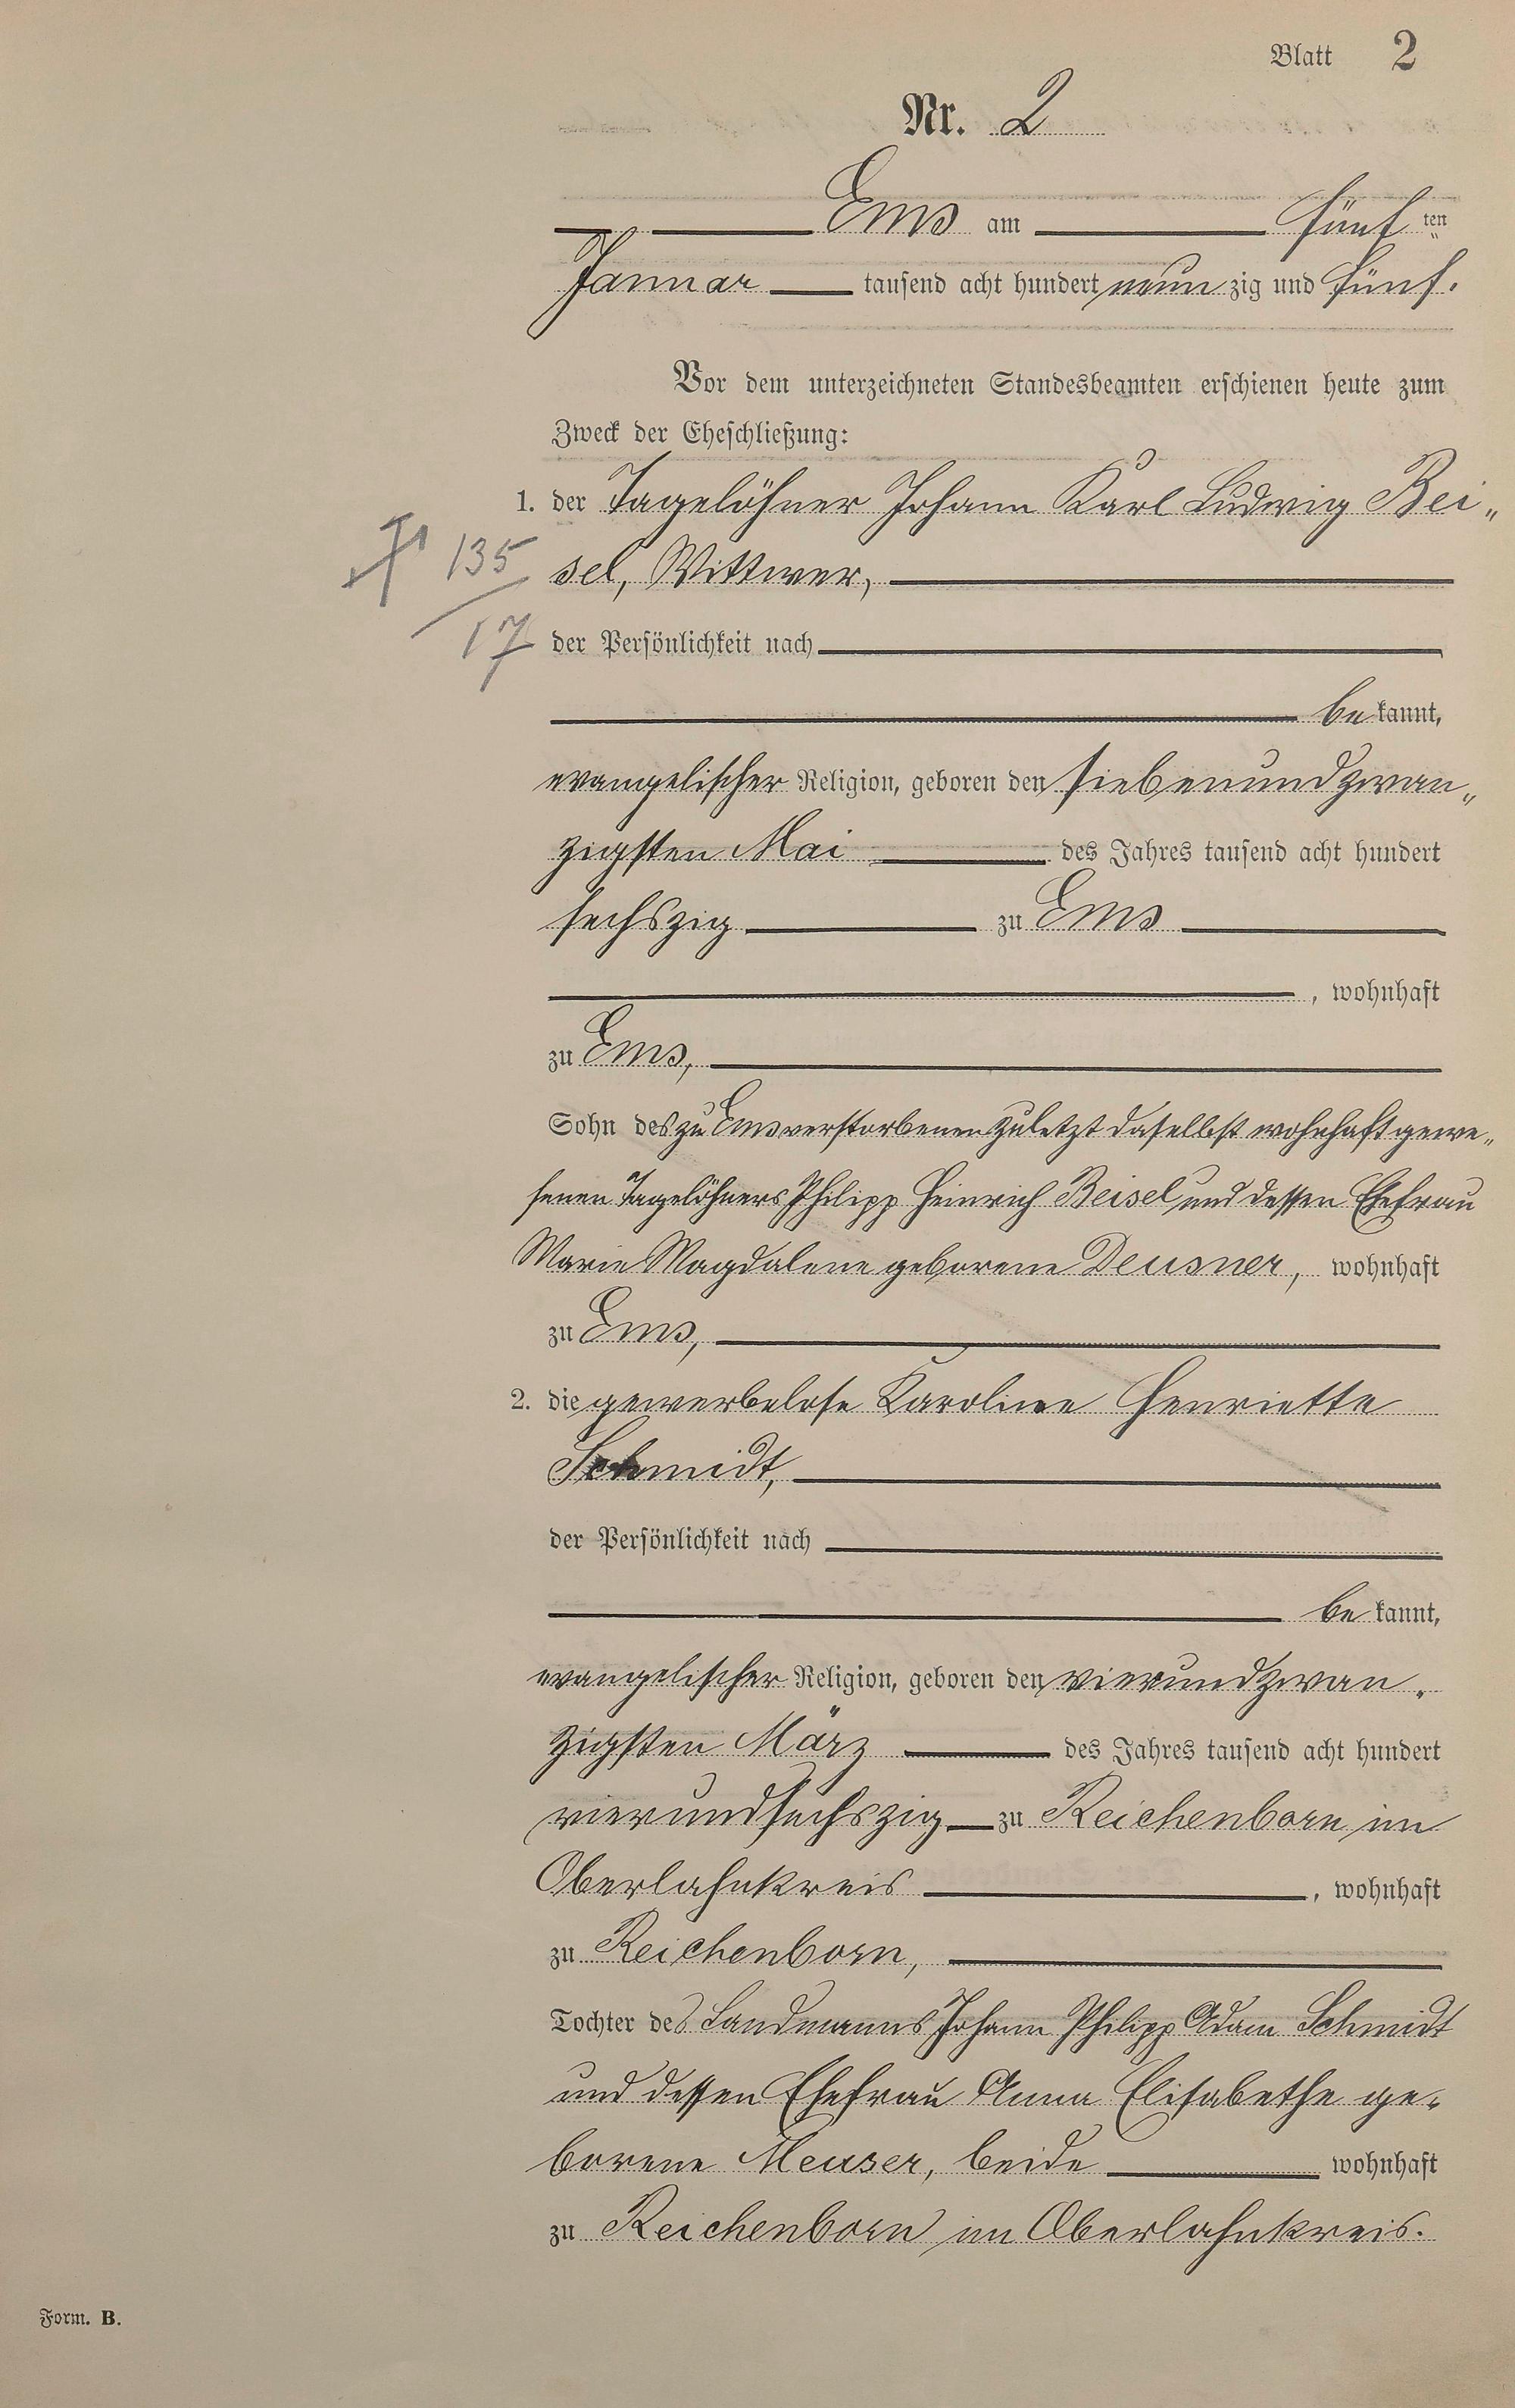 Blatt 2
Nr. 2
Ems am fünf ten
Januar tausend acht hundert neun zig und fünf.
Vor dem unterzeichneten Standesbeamten erschienen heute zum
Zweck der Eheschließung:
1. der Tagelöhner Johann Karl Ludwig Bei„
135 sel, Wittwer,
17 der Persönlichkeit nach
be kannt,
evangelischer Religion, geboren den siebenundzwan„
zigsten Mai des Jahres tausend acht hundert
sechszig zu Ems
, wohnhaft
zu Ems,
Sohn des zu Ems verstorbenen zuletzt daselbst wohnhaft gewe„
senen Tagelöhners Philipp Heinrich Beisel und dessen Ehefrau
Marie Magdalene geborene Deusner, wohnhaft
zu Ems,
2. die gewerbelose Karoline Henriette
Schmidt,
der Persönlichkeit nach
be kannt,
evangelischer Religion, geboren den vierundzwan„
zigsten März des Jahres tausend acht hundert
vierundsechszig zu Reichenborn im
Oberlahnkreis , wohnhaft
zu Reichenborn,
Tochter des Landmanns Johann Philipp Adam Schmidt
und dessen Ehefrau Anna Elisabethe ge„
borene Meuser, beide wohnhaft
zu Reichenborn im Oberlahnkreis.
Form. B.